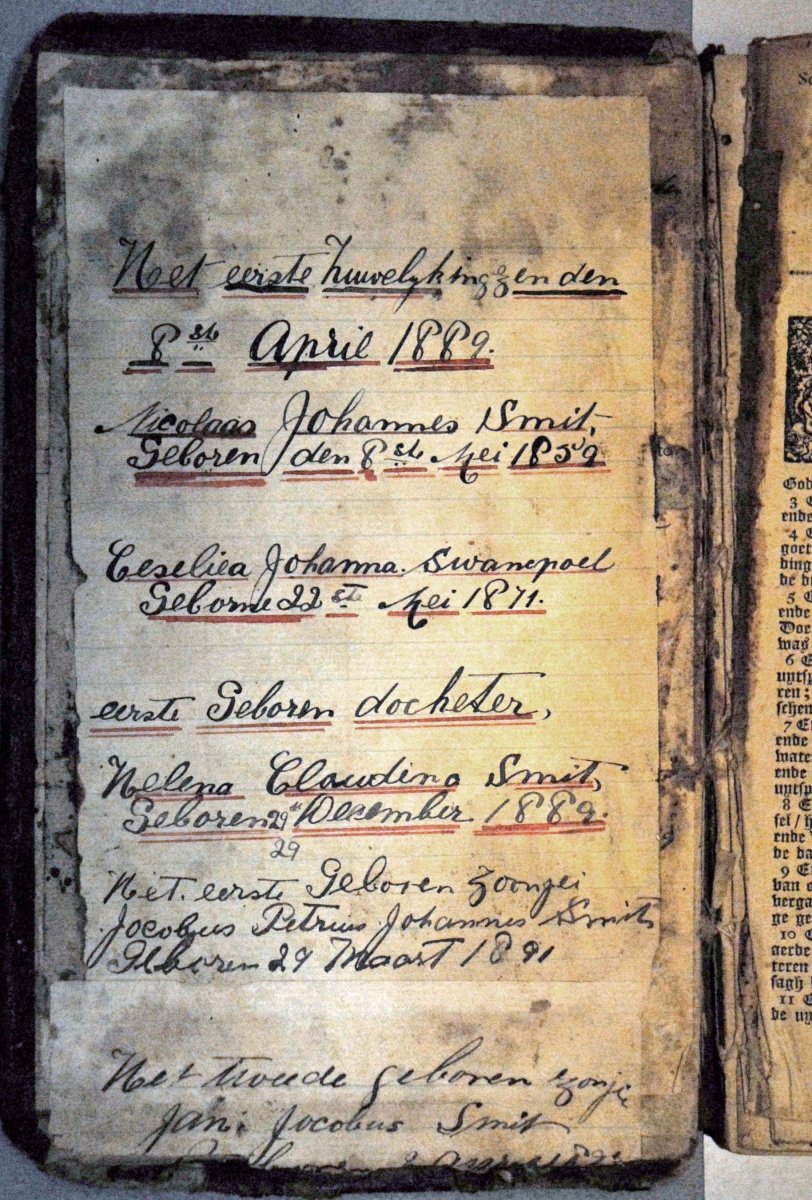 Het eerste huwelyking zen den
8ste April 1889.
Nicolaas Johannes Smit,
Geboren den 8ste Mei 1859
Ceseliea Johanna. Swanepoel
Geborne 22ste Mei 1871.
eerste Geboren docheter,
Helena Claudina Smit,
Geboren 29st December 1889.
29
Het. eerste Geboren zoonjei
Jocobus Petrius Johannes Smit,
Geboren 29 Maart 1891
Het tweede geboren zonje
Jan. Jocobus Smit
God
3
ende
4
goet
ding
de d
5
ende
Doe
was
6
uytsp
ren;
schen
7
ende
wate
ende
uytsp
8
sel/h
ende
de da
9
van
verga
ge ge
10
aerde
teren
sagh
11
de uy